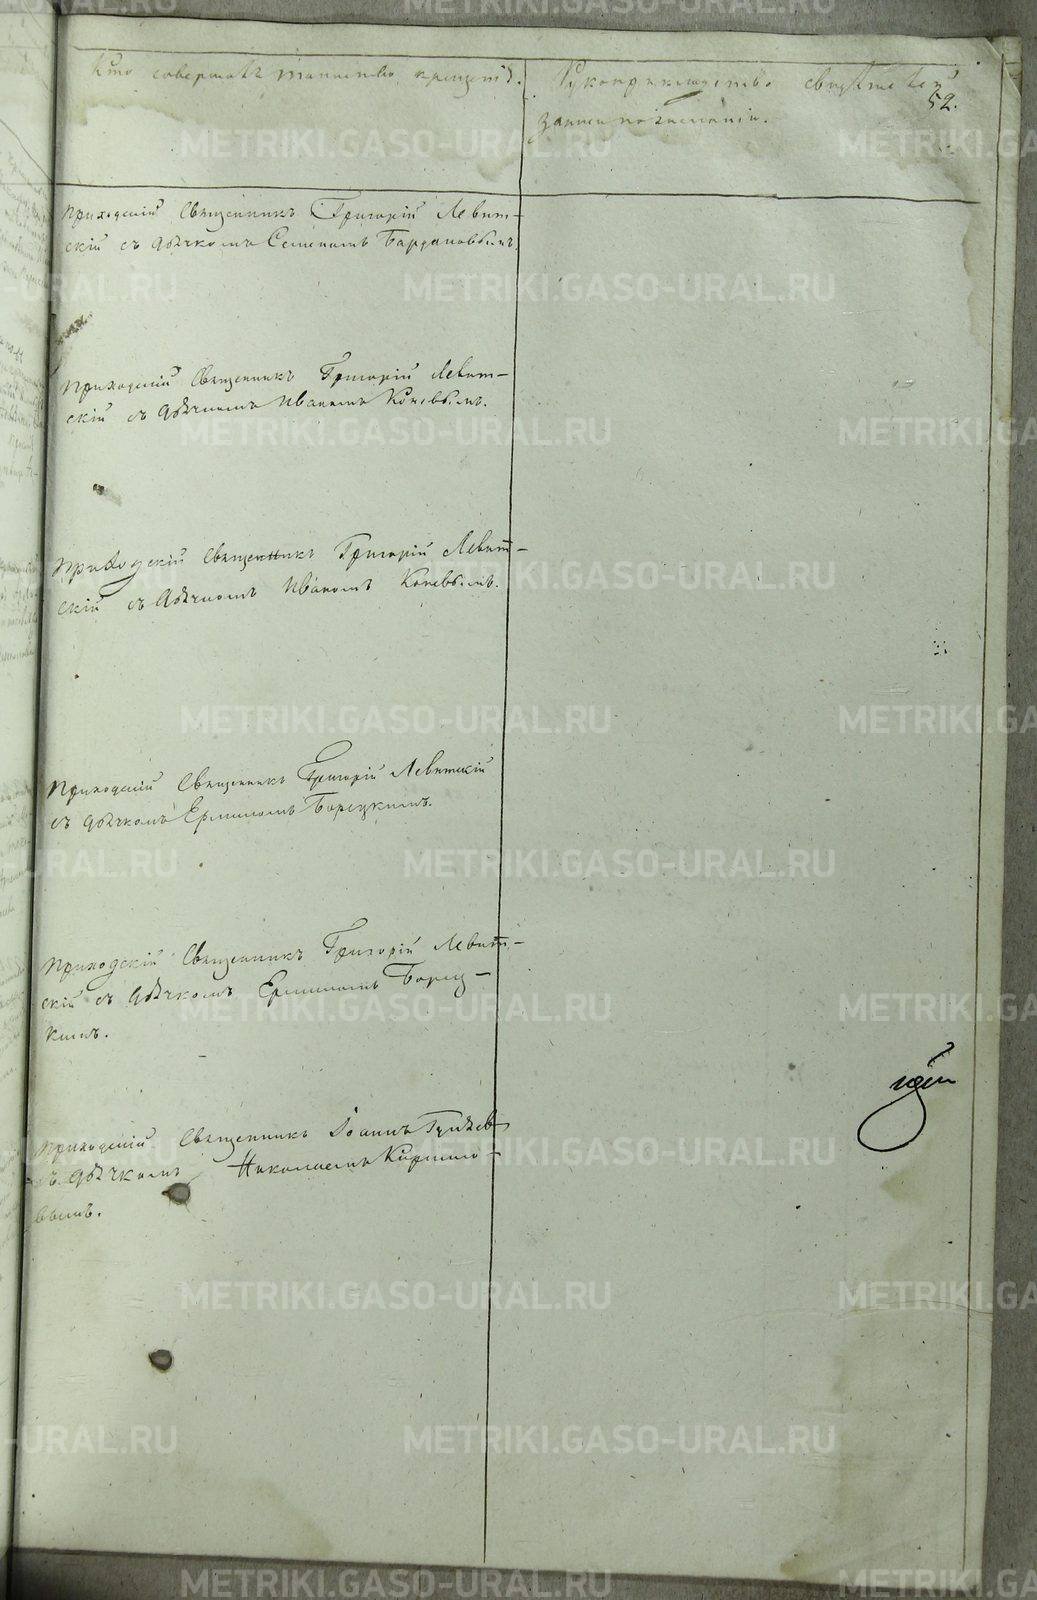 Кто совершалъ таинство крещенія.
Рукоприкладство свидѣтелей
52.
записи по желанію.
Приходскій Священникъ Григорій Левит-
скій съ дьячкомъ Семеномъ
Приходскій Священникъ Григорій Левит-
скій съ дьячкомъ Иваномъ Коневымъ.
Приходскій Священникъ Григорій Левит-
скій съ Дьячкомъ Иваномъ Коневымъ.
Приходскій Священникъ Григорій Левитскій
съ дьячкомъ Ермиломъ Борецкимъ.
Приходскій Священникъ Григорій Левит-
скій съ дьячкомъ Ермиломъ Борец-
кимъ.
Приходскій Священникъ Іоаннъ
съ дьячкомъ Николаемъ Кирило-
вымъ.
METRIKI.GASO-URAL.RU